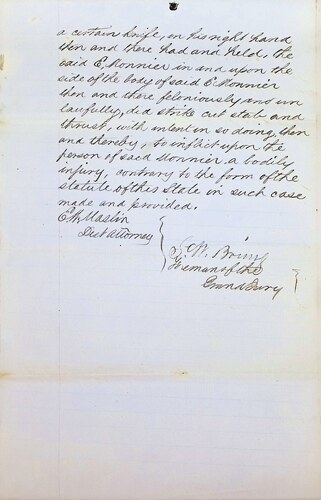 a certain knife, in his right hand
then and there had and held, the
said E. Monnier in and upon the
side of the body of said E Monnier
then and there feloniously and un
lawfully, did strike cut stab and
thrust, with intent in so doing, then
and thereby, to inflict upon the
person of said Monnier a bodily
injury, contrary to the form of the
statute of this State in such case
made and provided.
E W Maslin
Dist Attorney
W.
Foreman of the
Grand Jury